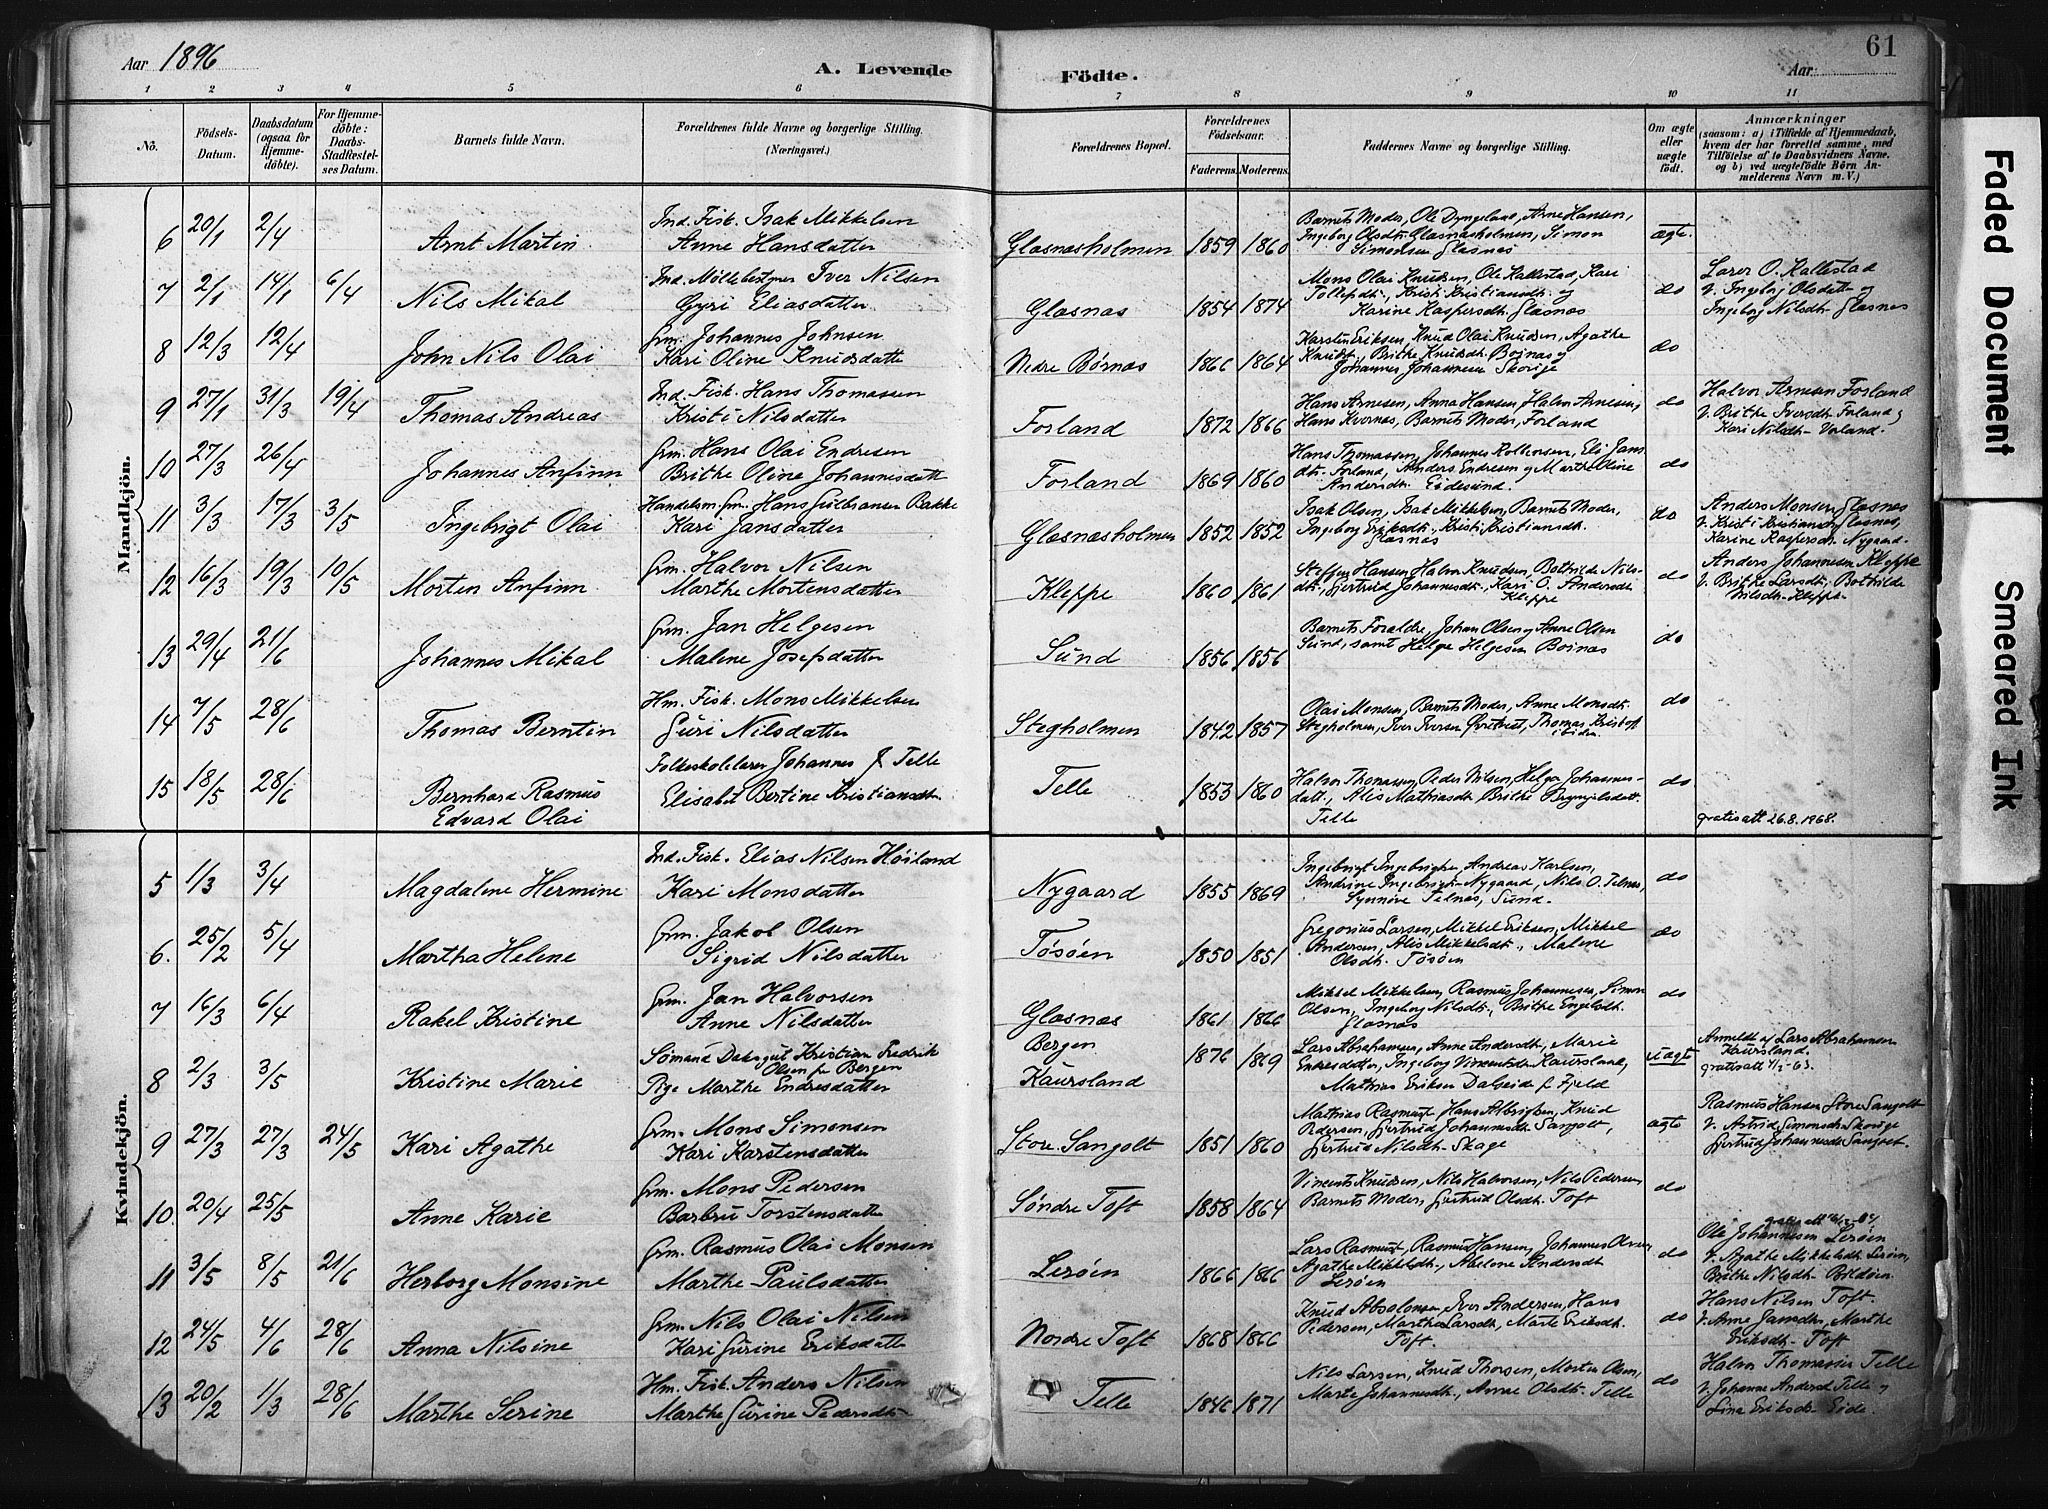 Aar 1896
A. Levende
Födte.
Aar
61
1 2 3 4 5 6 7 8 9 10 11
No.
Födsels-Datum.
Daabsdatum (ogsaa for Hjemme-döbte).
For Hjemme-döbte: Daabs-Stadfæstel-ses Datum.
Barnets fulde Navn.
Forældrenes fulde Navne og borgerlige Stilling. (Næringsvei.)
Forældrenes Bopæl.
Forældrenes Födselsaar.
Faderens. Moderens.
Faddernes Navne og borgerlige Stilling.
Om ægte eller uægte födt.
Anmærkninger
(saasom: a) i Tilfælde af Hjemmedaab, hvem der har forrettet samme, med Tilföielse af to Daabsvidners Navne. og b) ved uægtefödte Börn An-melderens Navn m. V.)
Mandkjön.
6 20/1 2/4 Arnt Martin
Ind. Fisk. Isak Mikkelsen
Anne Hansdatter
Glæsnæsholmen 1859 1860
Barnets Moder, Ole Dyngeland, Arne Hansen,
Ingeborg Olsdt. Glæsnæsholmen, Simon
Simonsen Glæsnæs
ægte.
7 2/1 14/1 6/4 Nils Mikal
Ind. Møllebestyrer Iver Nilsen
Gyri Eliasdatter
Glæsnæs 1854 1874
Mons Olai Knudsen, Ole Kallestad, Kari
Tollefsdt., Kristi Kristiansdt. og
Karine Kaspersdt. Glæsnæs
do
Lærer O. Kallestad
v. Ingeborg Olsdatt og
Ingeborg Nilsdt. Glæsnæs
8 12/3 12/4 John Nils Olai
Grm. Johannes Johnsen
Kari Oline Knudsdatter
Nedre Børnæs 1866 1864
Karsten Eriksen, Knud Olai Knudsen, Agathe
Knudsdt., Brithe Knudsdt. Boinæs og
Johannes Johannesen Skorige
do
9 27/1 31/3 19/4 Thomas Andreas
Ind. Fisk. Hans Thomassen
Kristi Nilsdatter
Forland 1872 1866
Hans Arnesen, Anna Hansen, Halvor Arnesen,
Hans Kvernæs, Barnets Moder, Forland
do
Halvor Arnesen Forland
v. Brithe Iversdt. Forland og
Kari Nilsdt. Vorland.
10 27/3 26/4 Johannes Anfinn
Grm. Hans Olai Endresen
Brithe Oline Johannesdatt
Forland 1869 1860
Hans Thomassen, Johannes Kolbensen, Eli Jans
dt. Forland, Anders Endresen og Marthe Oline
Andersdt. Eidesund.
do
11 3/3 17/3 3/5 Ingebrigt Olai
Handelsm. Grm. Hans Gulbransen Bakke
Kari Jansdatter
Glæsnæsholmen 1852 1852
Isak Olsen, Isak Mikkelsen, Barnets Moder,
Ingeborg Eriksdt., Kristi Kristiansdt.
Glæsnæs
do
Anders Monsen Glæsnæs
v. Kristi Kristiansdt Glæsnæs,
Karine Kaspersdt. Nygaard.
12 16/3 19/3 10/5 Morten Anfinn
Grm. Halvor Nilsen
Marthe Mortensdatter
Kleppe 1860 1861
Steffen Hansen, Halvor Knudsen, Bothilde Nils-
dt., Gjertrud Johannesdt., Kari O. Andersdt
Kleppe
do
Anders Johannesen Kleppe
v. Brithe Larsdt., Bothilde
Nilsdt. Kleppe.
13 29/4 21/6 Johannes Mikal
Grm. Jan Helgesen
Malene Josefsdatter
Sund 1856 1856
Barnets Forældre, Johan Olsen og Anne Olsen
Sund, samt Helge Helgesen Boinæs
do
14 7/5 28/6 Thomas Berntin
Hm. Fisk. Mons Mikkelsen
Guri Nilsdatter
Stegholmen 1842 1857
Olai Monsen, Barnets Moder, Anne Monsdt.
Stegholmen, Iver Iversen Thomas
do
15 18/5 28/6 Bernhard Rasmus
Edvard Olai
Folkeskolelærer Johannes J. Telle
Elisabet Bertine Kristiansdtr
Telle 1853 1860
Halvor Thomassen, Peder Nilsen, Helga Johannes-
datt., Alis Mathiasdt, Brithe Brynjelsdatt.
Telle
do
gratisatt 26.8.1968.
Kvindekjön.
5 1/3 3/4 Magdalene Hermine
Ind. Fisk. Elias Nilsen Høiland
Kari Monsdatter
Nygaard 1855 1869
Ingebrigt Ingebrigtsen, Andreas Karlsen,
Andrine Ingebrigtsdt. Nygaard, Nils O. Telnæs,
Synnøve Telnæs, Sund.
do
6. 25/2 5/4 Martha Helene
Grm. Jakob Olsen
Sigrid Nilsdatter
Tøsøen 1850 1851
Gregorius Larsen, Mikkel Eriksen, Mikkel
Andersen, Alis Mikkelsdt., Malene
Olsdt. Tøsøen
do
7 16/3 6/4 Rakel Kristine
Grm. Jan Halvorsen
Anne Nilsdatter
Glæsnæs 1861 1866
Mikkel Mikkelsen, Rasmus Johannesen, Simon
Olsen, Ingeborg Nilsdt., Brithe Engelsdt.
Glæsnæs
do
8 2/3 3/5 Kristine Marie
Sømand Kristian Fredrik
Olsen fr Bergen
Pige Marthe Endresdatter
Bergen
Kaursland
1876 1869
Lars Abrahamsen, Anne Andersdt., Marie
Endresdatter, Ingeborg Vincentsdt Kaursland,
Mathias Eriksen Dalseide fr Fjeld
uægte
Anmeldt af Lars Abrahamsen
Kaursland.
gratisatt 1/2-63.
9 27/3 27/3 24/5 Kari Agathe
Grm. Mons Simonsen
Kari Karstensdatter
Store Sangolt 1851 1860
Mathias Rasmuss, Hans Albrigtsen, Knud
Pedersen, Gjertrud Johannesdt Sangolt,
Gjertrud Nilsdt. Skage
ægte
Rasmus Hansen Store Sangolt
v. Astrid Simonsdt. Skorige
Gjertrud Johannesdt Sangolt.
10. 20/4 25/5 Anne Karie
Grm. Mons Pedersen
Barbru Torstensdatter
Søndre Toft 1858 1864
Vincents Knudsen, Nils Halvorsen, Nils Pedersen
Barnets Moder, Gjertrud Olsdt. Toft
do
11 3/5 8/5 21/6 Herborg Monsine
Grm. Rasmus Olai Monsen
Marthe Paulsdatter
Lerøen 1866 1866
Lars Rasmuss, Rasmus Hansen, Johannes Olsen,
Agathe Mikkelsdt., Malene Andersdt
Lerøen
do
Ole Johannesen Lerøen
v. Agathe Mikkelsdt. Lerøen,
Brithe Nilsdt. Bildøen
12 24/5 4/6 28/6 Anna Nilsine
Grm. Nils Olai Nilsen
Kari Gurine Eriksdatter
Nordre Toft 1868 1866
Knud Absalonsen, Iver Andersen, Hans
Pedersen, Martha Larsdt, Marte Eriksdt.
Toft.
do
Hans Nilsen Toft.
v. Anne Jansdtr, Marthe
Eriksdt. Toft
13 20/2 1/3 28/6 Marthe Serine
Hm. Fisk. Anders Nilsen
Marthe Gurine Pedersdt.
Telle 1846 1871
Nils Larsen, Knud Thorsen, Morten Olsen,
Marte Johannesdt., Anne Olsdt. Telle
do
Halvor Thomassen Telle
v. Johanne Andersd Telle og
Lina Eriksdt. Eide.
Faded Document
Smeared Ink